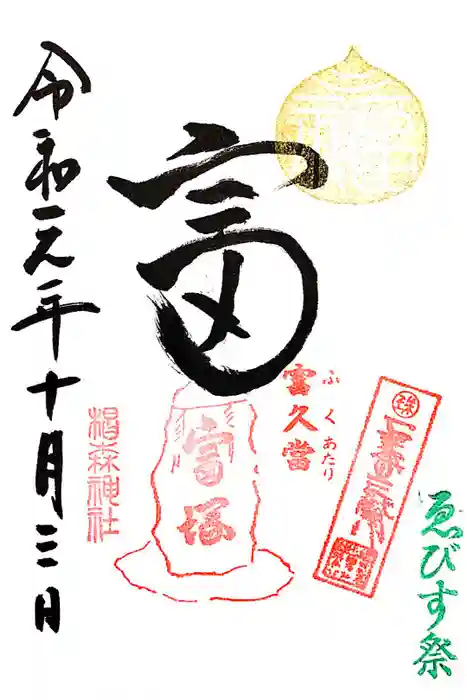 ゑびす祭
富久當
ふくあたり
富
富塚
椙森神社
令和元年十月三日